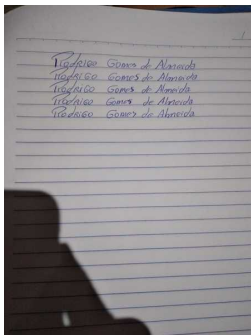 Rodrigo Gomes de Almeida
Rodrigo Gomes de Almeida
Rodrigo Gomes de Almeida
Rodrigo Gomes de Almeida
Rodrigo Gomes de Almeida